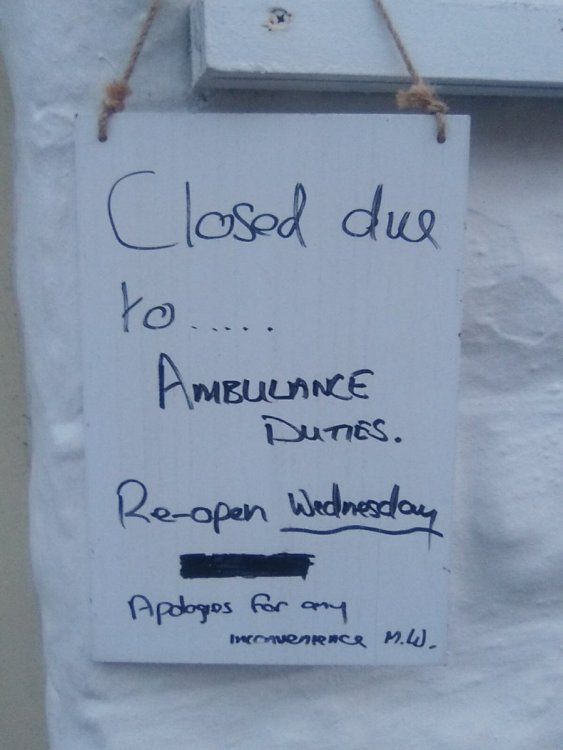 Closed due
to.....
AMBULANCE
DUTIES.
Re-open Wednesday
Apologies for any
inconvenience M.W.